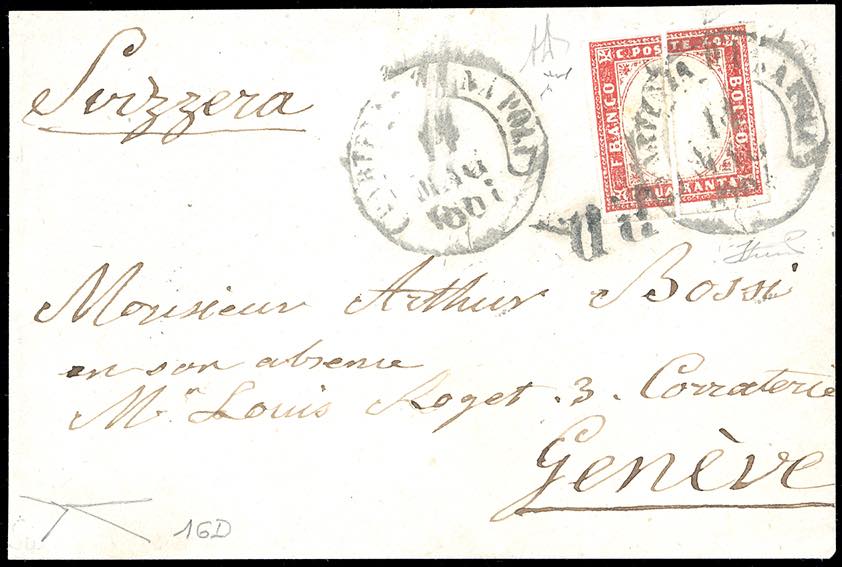 Svizzera
NAPOLI
MAG
C. POSTE
FRANCO
BOLLO
QUARANTA
P.D.
Monsieur Arthur Bossi
en son absence
Mr. Louis Roget . 3 . Corraterie
Genève
16D